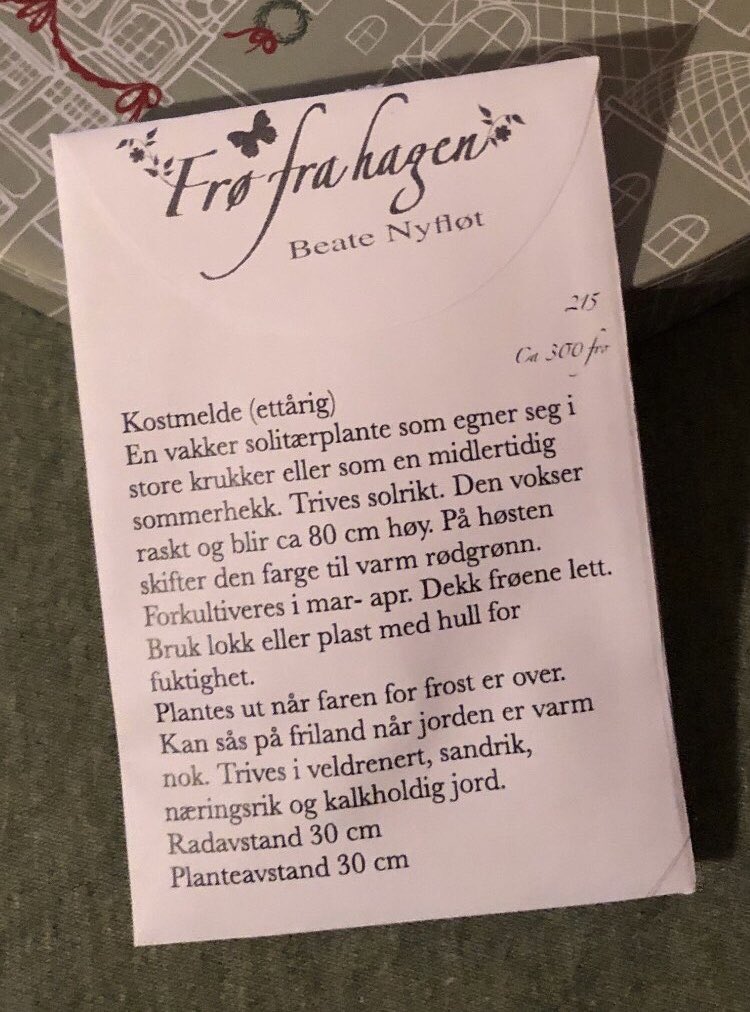 Frø fra hagen
Beate Nyfløt
215
Ca 300 frø
Kostmelde (ettårig)
En vakker solitærplante som egner seg i
store krukker eller som en midlertidig
sommerhekk. Trives solrikt. Den vokser
raskt og blir ca 80 cm høy. På høsten
skifter den farge til varm rødgrønn.
Forkultiveres i mar- apr. Dekk frøene lett.
Bruk lokk eller plast med hull for
fuktighet.
Plantes ut når faren for frost er over.
Kan sås på friland når jorden er varm
nok. Trives i veldrenert, sandrik,
næringsrik og kalkholdig jord.
Radavstand 30 cm
Planteavstand 30 cm